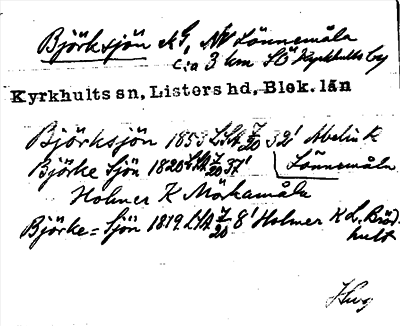 Björksjön NV Lönnemåla
c:a 3 km SÖ Kyrkhults by
Kyrkhults sn, Listers hd, Blek. län
Björksjön 1853 LSA 7/20 32' Abelin K
Lönnemåla
Björke Sjön 1820 LSA 7/20 37'
Holmer K Måkamåla
Björke=Sjön 1819 LSA 7/20 8' Holmer K L. Bröd-
hult